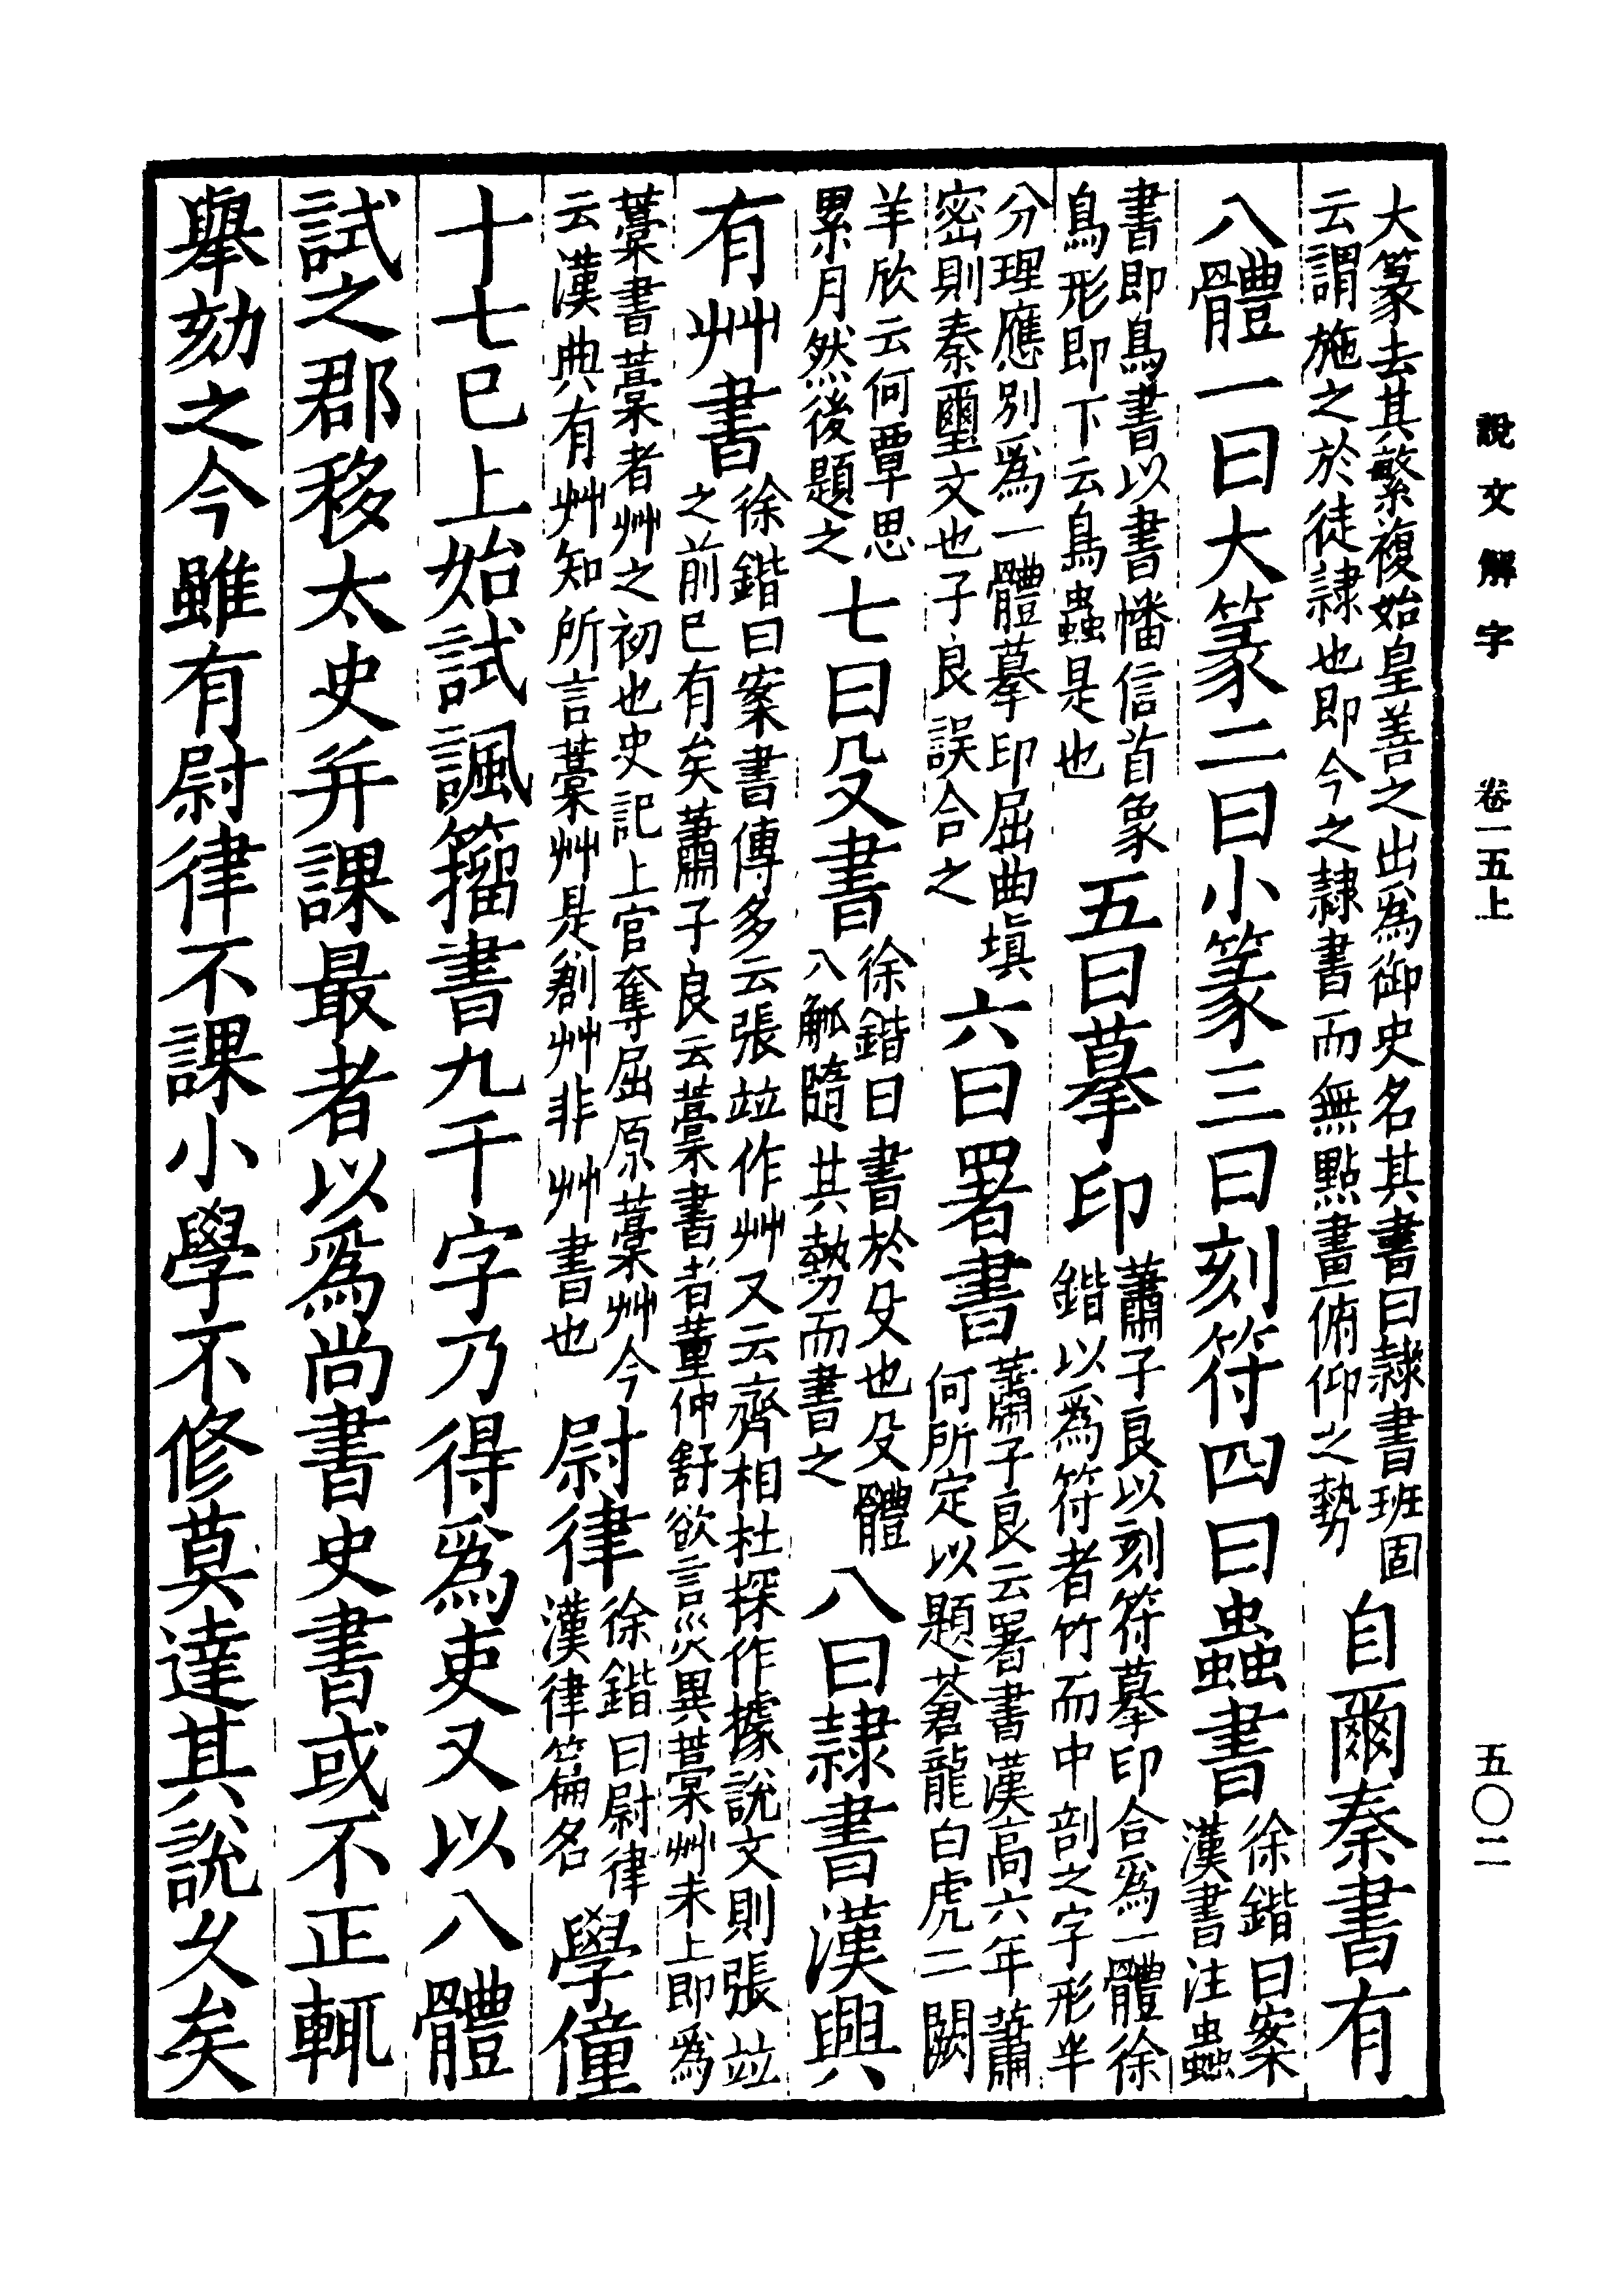 說文解字　卷一五上　五〇二
大篆去其繁複始皇善之出爲御史名其書曰隸書班固云謂施之於徒隸也即今之隸書而無點畫俯仰之勢自爾秦書有
八體一曰大篆二曰小篆三曰刻符四曰蟲書徐鍇曰案漢書注蟲
書即鳥書以書幡信首象鳥形即下云鳥蟲是也五曰摹印蕭子良以刻符摹印合爲一體徐鍇以爲符者竹而中剖之字形半
分理應別爲一體摹印屈曲塡密則秦璽文也子良誤合之六曰署書蕭子良云署書漢高六年蕭何所定以題蒼龍白虎二闕
羊欣云何覃思累月然後題之七曰殳書徐鍇曰書於殳也殳體八觚隨其勢而書之八曰隸書漢興
有艸書徐鍇曰案書傳多云張竝作艸又云齊相杜探作據說文則張竝之前已有矣蕭子良云藁書者董仲舒欲言災異藁艸未上即爲
藁書藁者艸之初也史記上官奪屈原藁艸今云漢典有艸知所言藁艸是創艸非艸書也尉律徐鍇曰尉律漢律篇名學僮
十七已上始試諷籀書九千字乃得爲吏又以八體
試之郡移太史并課最者以爲尚書史書或不正輒
舉劾之今雖有尉律不課小學不修莫達其說久矣